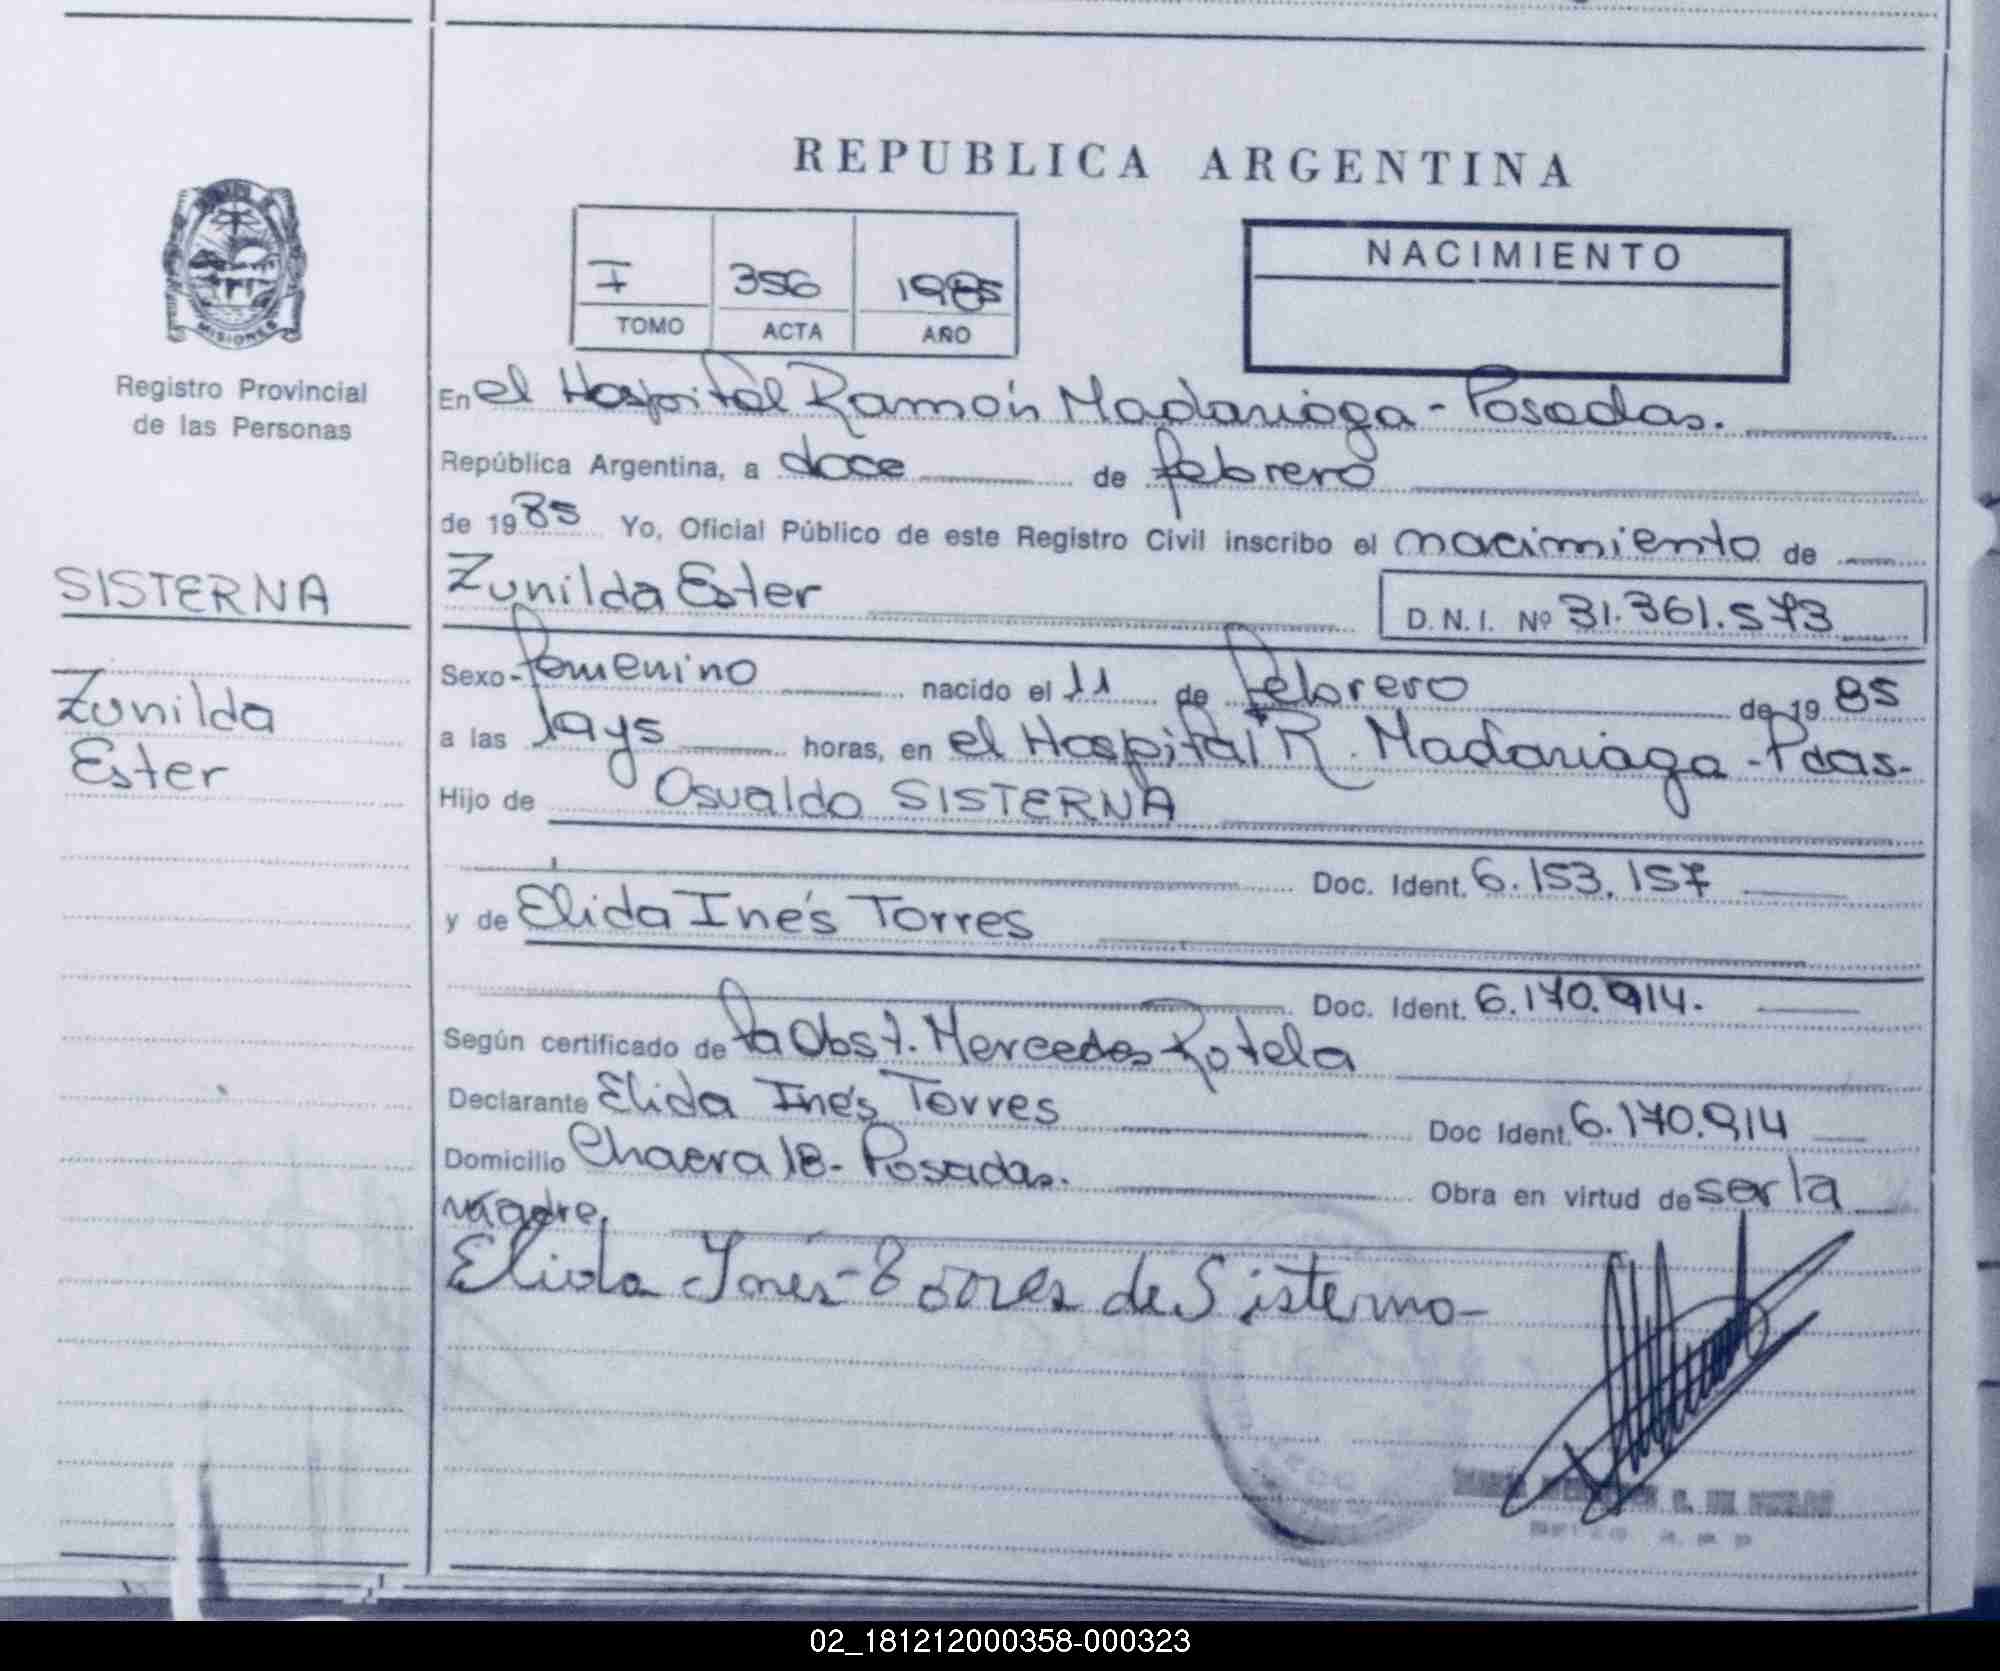 REPUBLICA ARGENTINA
NACIMIENTO
I 356 1985
TOMO ACTA AÑO
MISIONES
Registro Provincial
de las Personas
SISTERNA
Zunilda
Ester
En el Hospital Ramón Madariaga - Posadas.
República Argentina, a doce de febrero
de 1985 Yo, Oficial Público de este Registro Civil inscribo el nacimiento de
Zunilda Ester D.N.I. Nº 31.361.573
Sexo - femenino nacido el 11 de febrero de 1985
a las horas, en el Hospital R. Madariaga - Pdas-
Hijo de Osvaldo SISTERNA
Doc. Ident. 6.153.157
y de Elida Inés Torres
Doc. Ident. 6.170.914.
Según certificado de la Obst. Mercedes Rotela
Declarante Elida Inés Torres Doc Ident. 6.170.914
Domicilio Chacra 18 - Posadas. Obra en virtud de ser la
madre.
Elida Inés Torres de Sisterna -
02_181212000358-000323